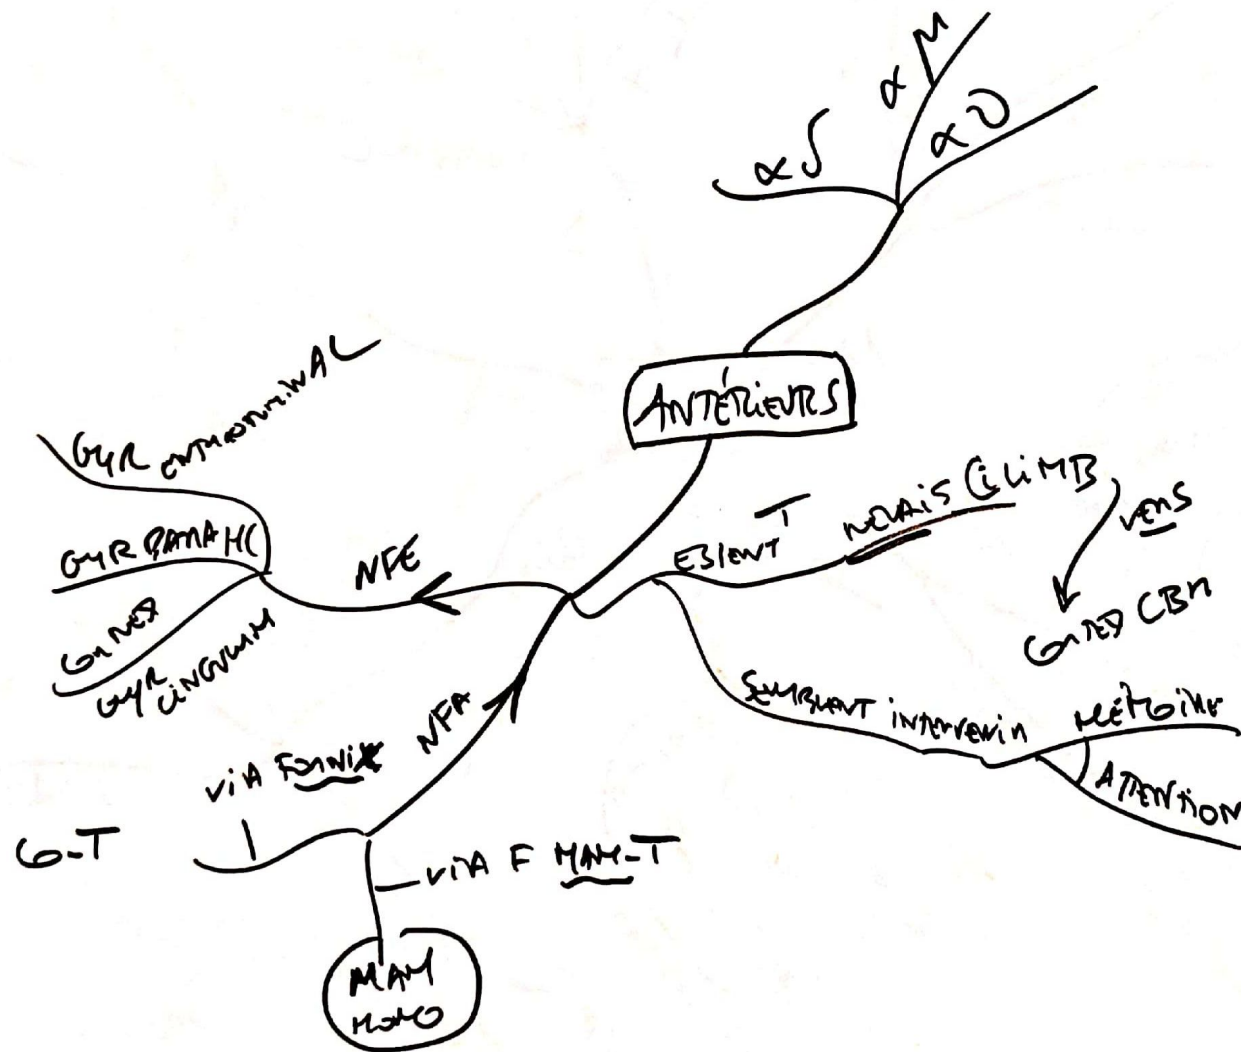 α M
α D
α S
ANTÉRIEURS
GYR
GYR PARA HC
CORTEX
GYR CINGULUM
NFE
EBIENT T
RELAIS Ci LIMB
VERS
CORTEX CBR
SEMBLENT INTERVENIR
MÉMOIRE
ATTENTION
NFA
VIA FORNIX
-T
VIA F MAM-T
MAM
HOMO